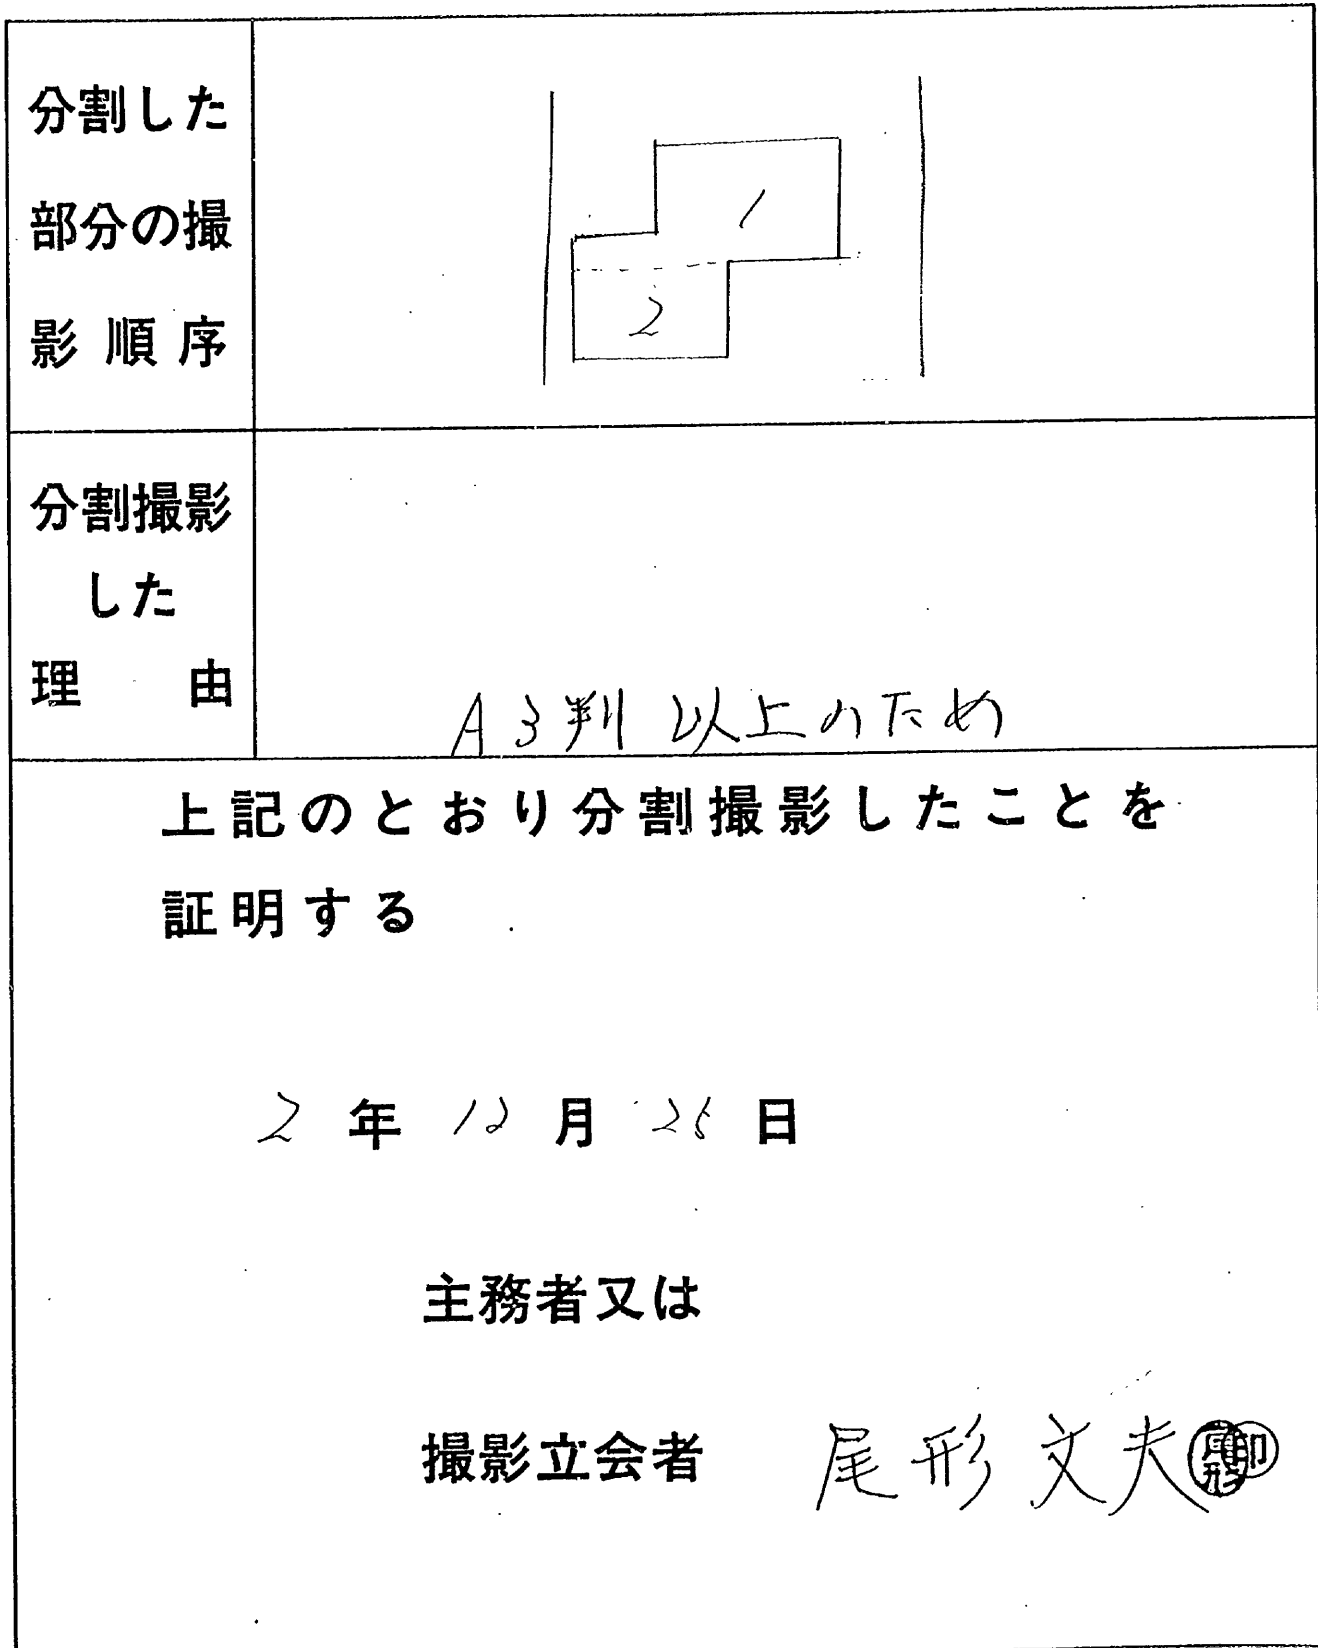 分割した
部分の撮
影順序
1
2
分割撮影
した
理由
A3判以上のため
上記のとおり分割撮影したことを
証明する
2年12月25日
主務者又は
撮影立会者 尾形文夫 尾形 印